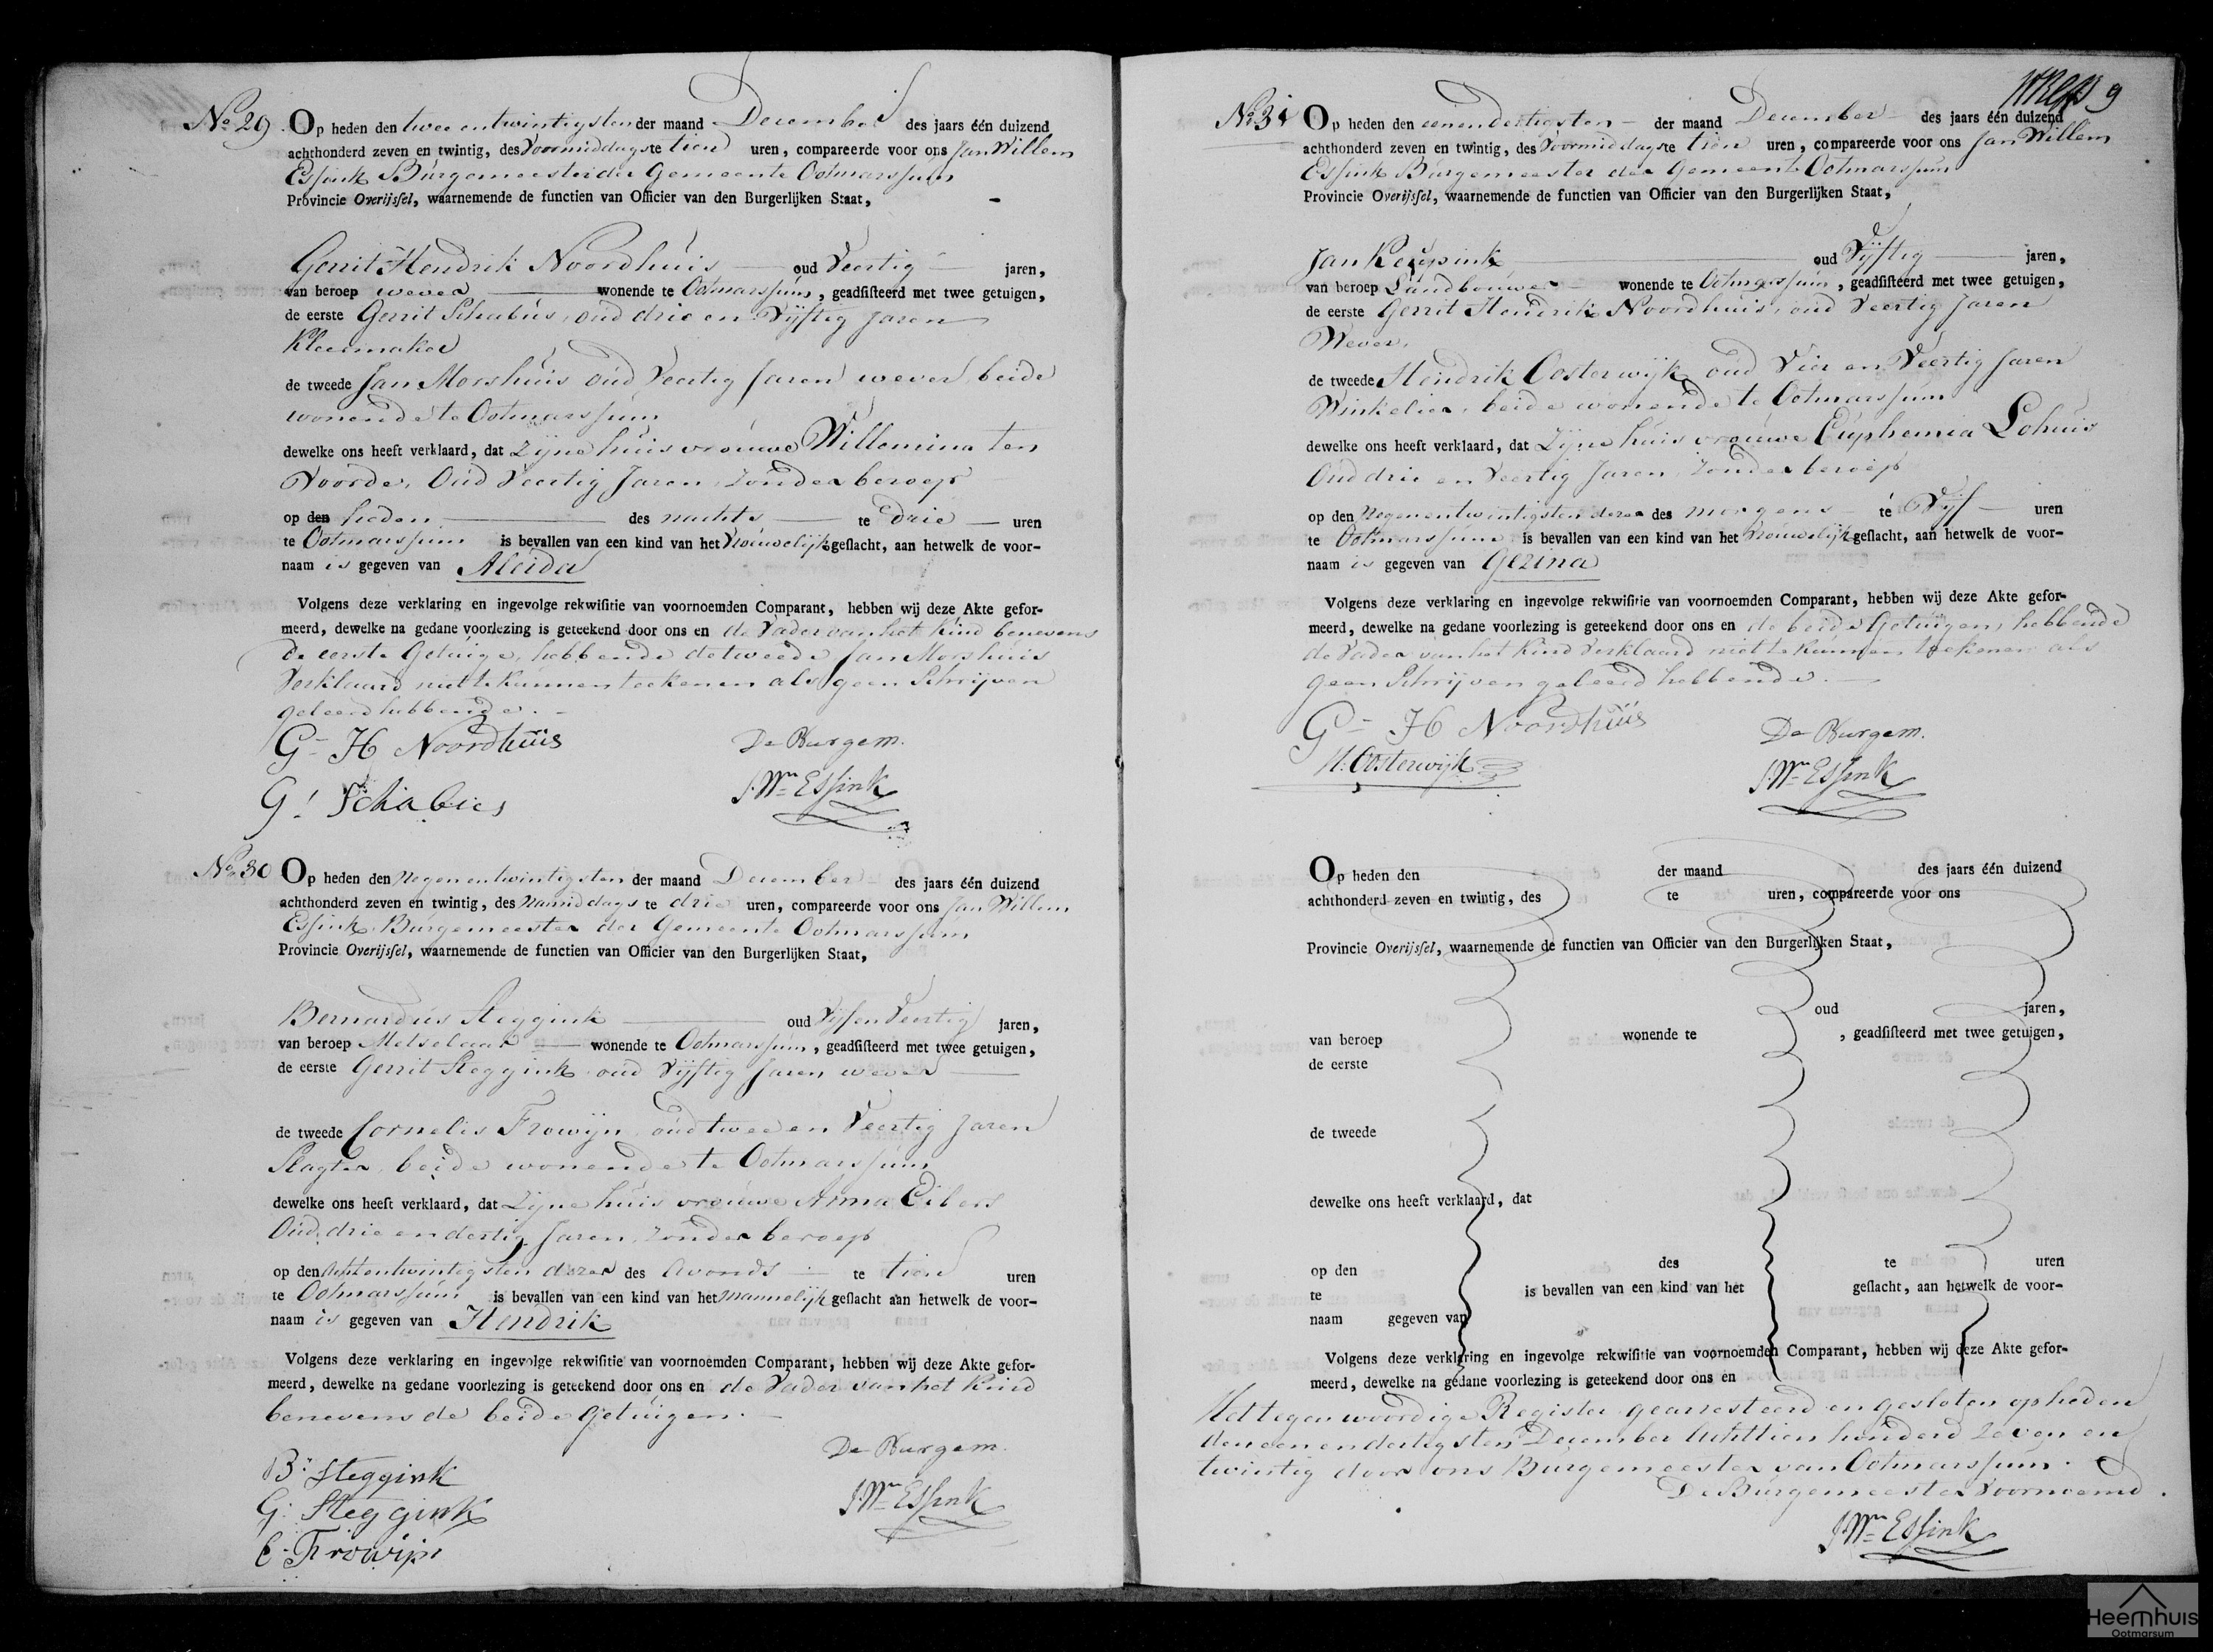 No 29. Op heden den twee en twintigsten der maand December des jaars één duizend
achthonderd zeven en twintig, des Voormiddags te tien uren, compareerde voor ons Jan Willem
Essink Burgemeester der Gemeente Ootmarssum
Provincie Overijssel, waarnemende de functien van Officier van den Burgerlijken Staat,
Gerrit Hendrik Noordhuis oud Veertig jaren,
van beroep wever wonende te Ootmarssum, geadsisteerd met twee getuigen,
de eerste Gerrit Schabús, oud drie en Vijftig Jaren
Kleermaker
de tweede Jan Morshuis oud Veertig Jaren wever beide
wonende te Ootmarssum
dewelke ons heeft verklaard, dat Zijne huisvrouwe Willemina ten
Voorde, Oud Veertig Jaren, Zonder beroep
op den heden des nachts te drie uren
te Ootmarssum is bevallen van een kind van het Vrouwelijk geslacht, aan hetwelk de voor-
naam is gegeven van Aleida
Volgens deze verklaring en ingevolge rekwisitie van voornoemden Comparant, hebben wij deze Akte gefor-
meerd, dewelke na gedane voorlezing is geteekend door ons en de Vader van het Kind benevens
de eerste Getuige, hebbende de tweede Jan Morshuis
Verklaard niet te Kunnen teekenen als geen Schrijven
geleerd hebbende.
G= H Noordhuis De Burgem.
G! Schabus J.Wm Essink
No 30 Op heden den Negen en twintigsten der maand December des jaars één duizend
achthonderd zeven en twintig, des Namiddags te drie uren, compareerde voor ons Jan Willem
Essink Burgemeester der Gemeente Ootmarssum
Provincie Overijssel, waarnemende de functien van Officier van den Burgerlijken Staat,
Bernardus Steggink oud Vijf en Veertig jaren,
van beroep Metselaar wonende te Ootmarssum, geadsisteerd met twee getuigen,
de eerste Gerrit Steggink oud Vijftig Jaren wever
de tweede Cornelis Frowijn oud twee en Veertig Jaren
Slagter, beide wonende te Ootmarssum
dewelke ons heeft verklaard, dat Zijne huisvrouwe Anna Eibers
Oud drie en dertig Jaren, Zonder beroep
op den Achtentwintigsten dezer des Avonds te tien uren
te Ootmarssum is bevallen van een kind van het Mannelijk geslacht aan hetwelk de voor-
naam is gegeven van Hendrik
Volgens deze verklaring en ingevolge rekwisitie van voornoemden Comparant, hebben wij deze Akte gefor-
meerd, dewelke na gedane voorlezing is geteekend door ons en de Vader van het Kind
benevens de beide Getuigen.
B. Steggink De Burgem.
G. Steggink J.Wm Essink
C. Frowijn
9
No 31 Op heden den eenendertigsten der maand December des jaars één duizend
achthonderd zeven en twintig, des Voormiddags te tien uren, compareerde voor ons Jan Willem
Essink Burgemeester der Gemeente Ootmarssum
Provincie Overijssel, waarnemende de functien van Officier van den Burgerlijken Staat,
Jan Keupink oud Vijftig jaren,
van beroep Landbouwer wonende te Ootmarssum, geadsisteerd met twee getuigen,
de eerste Gerrit Hendrik Noordhuis, oud Veertig Jaren
Wever,
de tweede Hendrik Oosterwijk oud Vier en Veertig Jaren
Winkelier, beide wonende te Ootmarssum
dewelke ons heeft verklaard, dat Zijne huisvrouwe Euphemia Lohuis
Oud drie en Veertig Jaren Zonder beroep
op den Negenentwintigsten dezer des morgens te Vijf uren
te Ootmarssum is bevallen van een kind van het Vrouwelijk geslacht, aan hetwelk de voor-
naam is gegeven van Gezina
Volgens deze verklaring en ingevolge rekwisitie van voornoemden Comparant, hebben wij deze Akte gefor-
meerd, dewelke na gedane voorlezing is geteekend door ons en de beide Getuigen, hebbende
de Vader van het Kind Verklaard niet te kunnen teekenen als
geen Schrijven geleerd hebbende.
G= H Noordhuis De Burgem.
H. Oosterwijk J.Wm Essink
Op heden den der maand des jaars één duizend
achthonderd zeven en twintig, des te uren, compareerde voor ons
Provincie Overijssel, waarnemende de functien van Officier van den Burgerlijken Staat,
oud jaren,
van beroep wonende te , geadsisteerd met twee getuigen,
de eerste
de tweede
dewelke ons heeft verklaard, dat
op den des te uren
te is bevallen van een kind van het geslacht, aan hetwelk de voor-
naam gegeven van
Volgens deze verklaring en ingevolge rekwisitie van voornoemden Comparant, hebben wij deze Akte gefor-
meerd, dewelke na gedane voorlezing is geteekend door ons en
Het tegenwoordige Register gearresteerd en gesloten op heden
den een en dertigsten December Achttien honderd Zeven en
twintig door ons Burgemeester van Ootmarssum.
De Burgemeester Voornoemd.
J.Wm Essink
Heemhuis
Ootmarsum